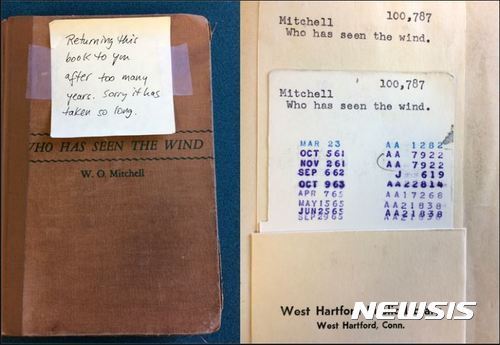 Returning this
book to you
after too many
years. Sorry it has
taken so long.
WHO HAS SEEN THE WIND
W. O. Mitchell
Mitchell 100,787
Who has seen the wind.
Mitchell 100,787
Who has seen the wind.
MAR 23 AA 1282
OCT 5 61 AA 7922
NOV 2 61 AA 7922
SEP 6 62 J 619
OCT 9 63 AA22814
APR 7 65 AA17268
MAY 15 65 AA21838
JUN 25 65 AA21838
SEP 29 65
West Hartford
West Hartford, Conn.
NEWSIS